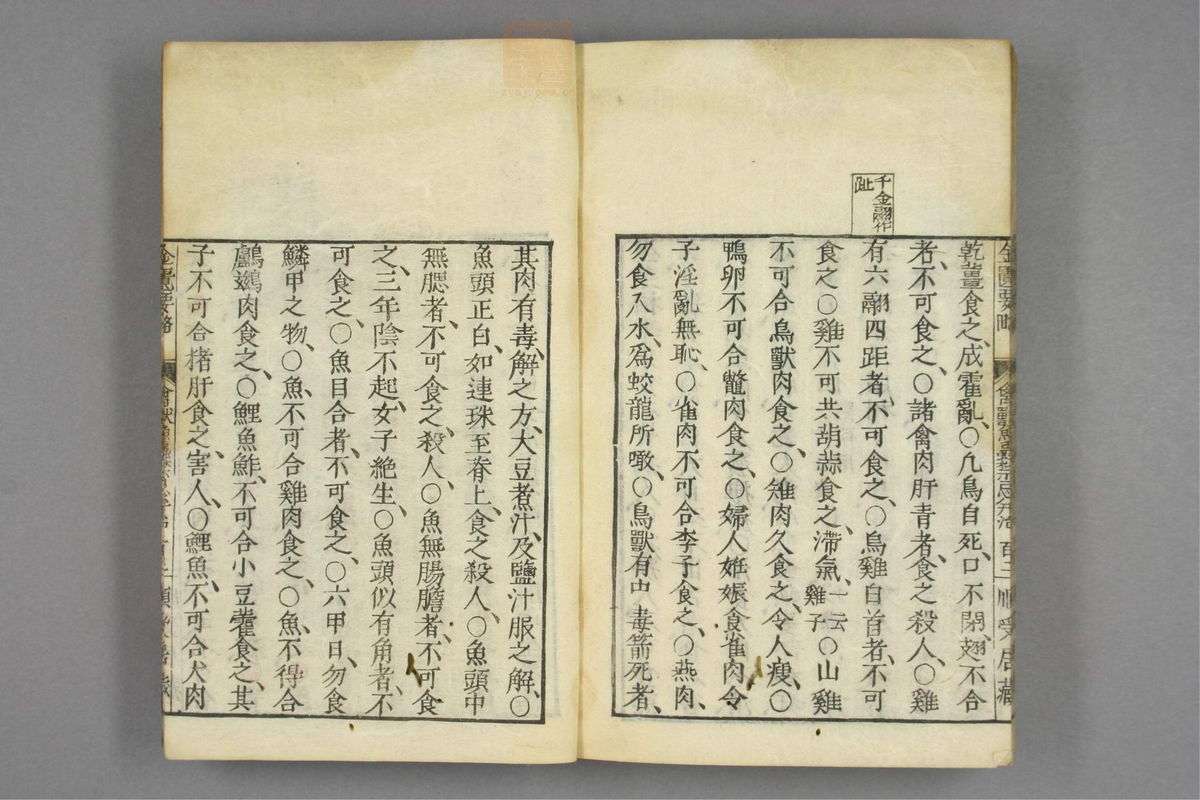 千金翮作
趾
乾薑食之、成霍亂、○凡鳥自死、口不閉、翅不合
者、不可食之、○諸禽肉肝青者、食之殺人、○雞
有六翮四距者、不可食之、○烏雞白首者、不可
食之○雞不可共葫蒜食之、滯氣、一云雞子○山雞
不可合鳥獸肉食之、○雉肉久食之、令人瘦、○
鴨卵不可合鼈肉食之、○婦人妊娠食雀肉令
子淫亂無恥、○雀肉不可合李子食之、○燕肉、
勿食入水、爲蛟龍所噉、○鳥獸有中毒箭死者、
其肉有毒、解之方、大豆煮汁、及鹽汁服之解、○
魚頭正白、如連珠至脊上、食之殺人、○魚頭中
無腮者、不可食之、殺人、○魚無腸膽者、不可食
之、三年陰不起、女子絶生、○魚頭似有角者、不
可食之、○魚目合者、不可食之、○六甲日、勿食
鱗甲之物、○魚不可合雞肉食之、○魚不得合
鸕鷀肉食之、○鯉魚鮓、不可合小豆藿食之、其
子不可合猪肝食之、害人、○鯉魚、不可合犬肉
金匱要略